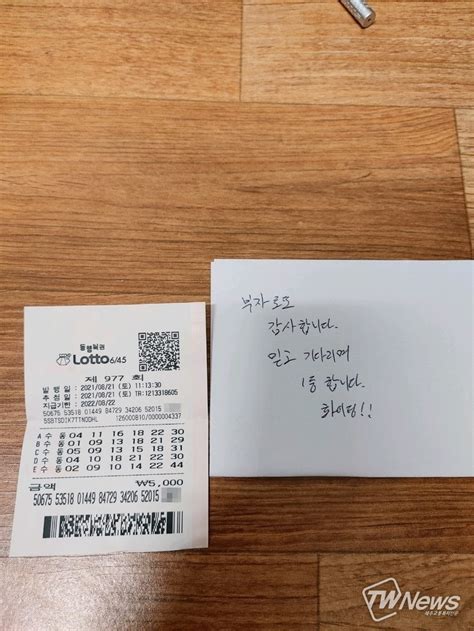 동행복권
Lotto 6/45
제 977 회
발 행 일 : 2021/08/21 (토) 11:13:30
추 첨 일 : 2021/08/21 (토) TR:1213318605
지급기한 : 2022/08/22
50675 53518 01449 84729 34206 52015
126000810/0000004337
A 수 동 04 11 16 18 22 30
B 수 동 01 09 13 18 21 29
C 수 동 05 09 13 15 18 19
D 수 동 04 13 16 18 22 30
E 수 동 02 09 10 14 22 44
금액 ₩5,000
50675 53518 01449 84729 34206 52015
부자로또
감사합니다.
믿고 기다리며
1등 합니다.
화이팅!!
TWNews